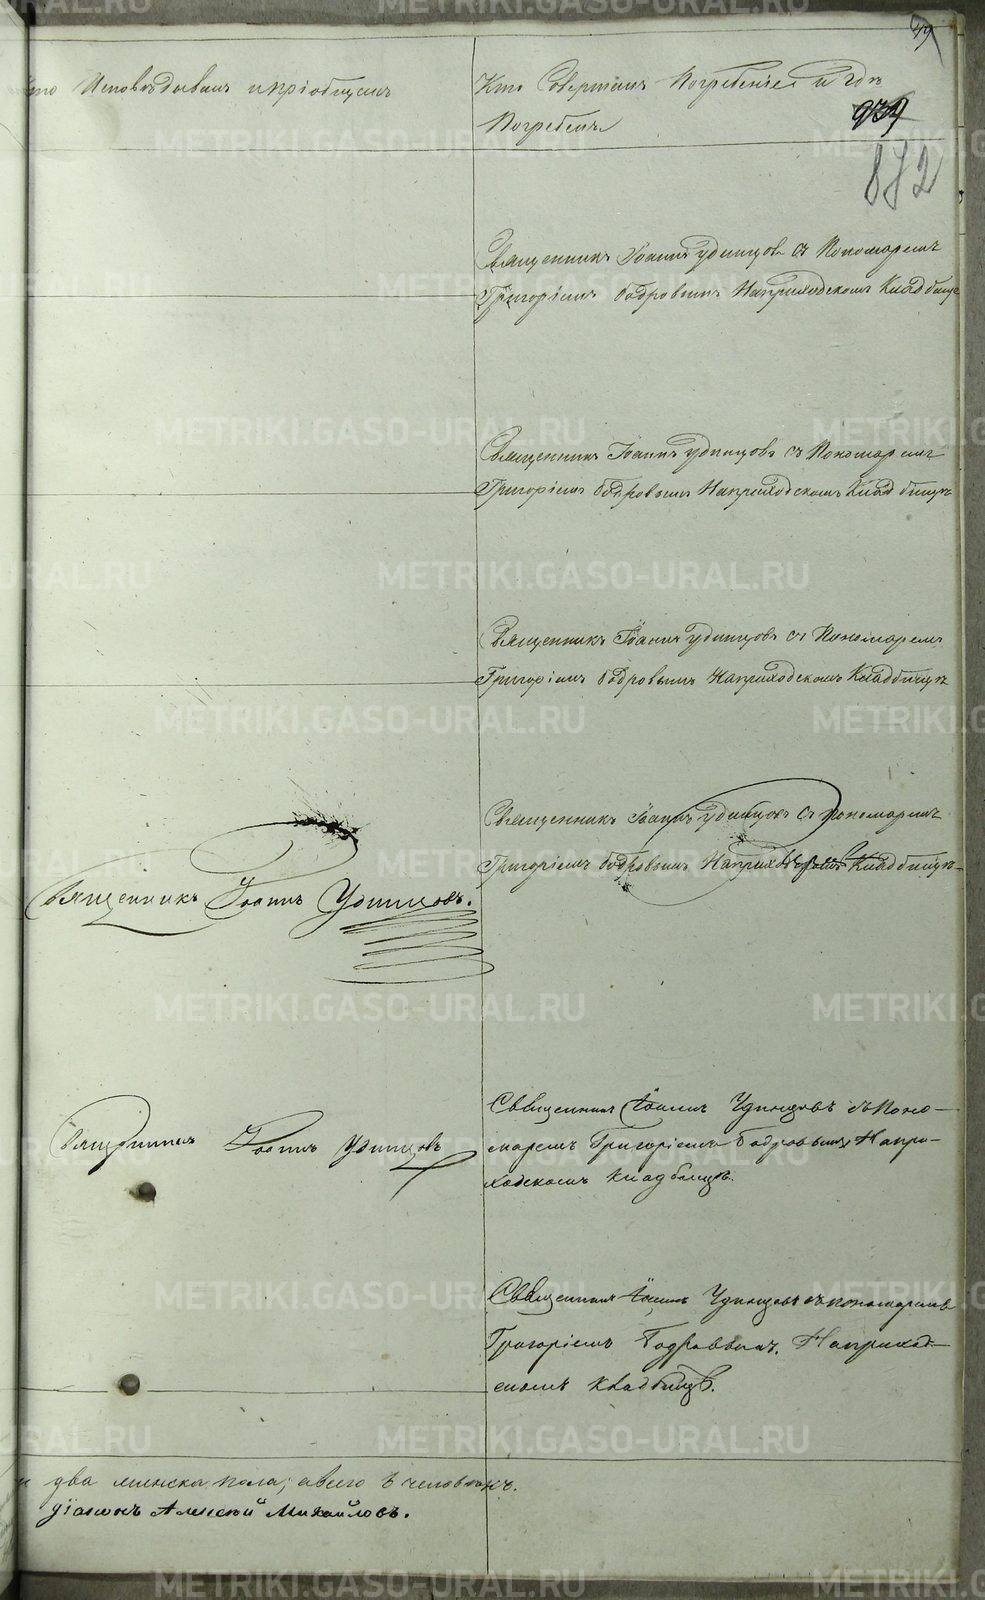 49
Кто Исповѣдывалъ и пріобщилъ
Кто Совершилъ Погребеніе и гдѣ
Погребенъ
934
872
Священникъ Іоаннъ Удинцовъ съ Пономаремъ
Григоріемъ Бодровымъ На приходскомъ Кладбище
Священникъ Іоаннъ Удинцовъ съ Пономаремъ
Григоріемъ Бодровымъ На приходскомъ Кладбищѣ
Священникъ Іоаннъ Удинцовъ съ Пономаремъ
Григоріемъ Бодровымъ На приходскомъ Кладбищѣ
Священникъ Іоаннъ Удинцовъ съ пономаремъ
Григоріемъ Бодровымъ На приходскомъ Кладбищѣ
Священникъ Іоаннъ Удинцовъ.
Священникъ Іоаннъ Удинцовъ съ Поно-
маремъ Григоріемъ Бодровымъ На при-
ходскомъ кладбищѣ.
Священникъ Іоаннъ Удинцовъ
Священникъ Іоаннъ Удинцовъ съ пономаремъ
Григоріемъ Бодровымъ. На приход-
скомъ кладбищѣ.
и два женска пола; а всего 6 человѣкъ.
Діаконъ Алексѣй Михайловъ.
METRIKI.GASO-URAL.RU